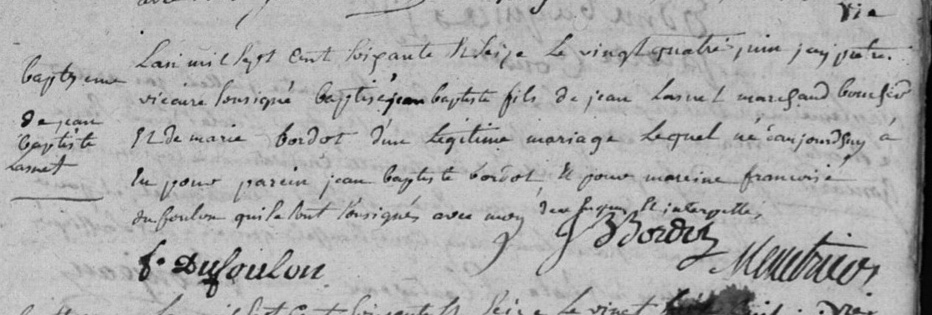 vie
baptesme
de jean
baptiste
Lasnet
Lan mil sept cent soixante et seize le vingt quatre juin jay pretre
vicaire soussigné baptisé jean baptiste fils de jean Lasnet marchand boucher
et de marie bordot d'une légitime mariage lequel né aujourdhuy à
eu pour parein jean baptiste bordot, et pour mareine francoise
dufoulon qui se sont soussignés avec moy de ce requis et interpellés
f. Dufoulon
J B Bordot
cent soixante et seize le vingt